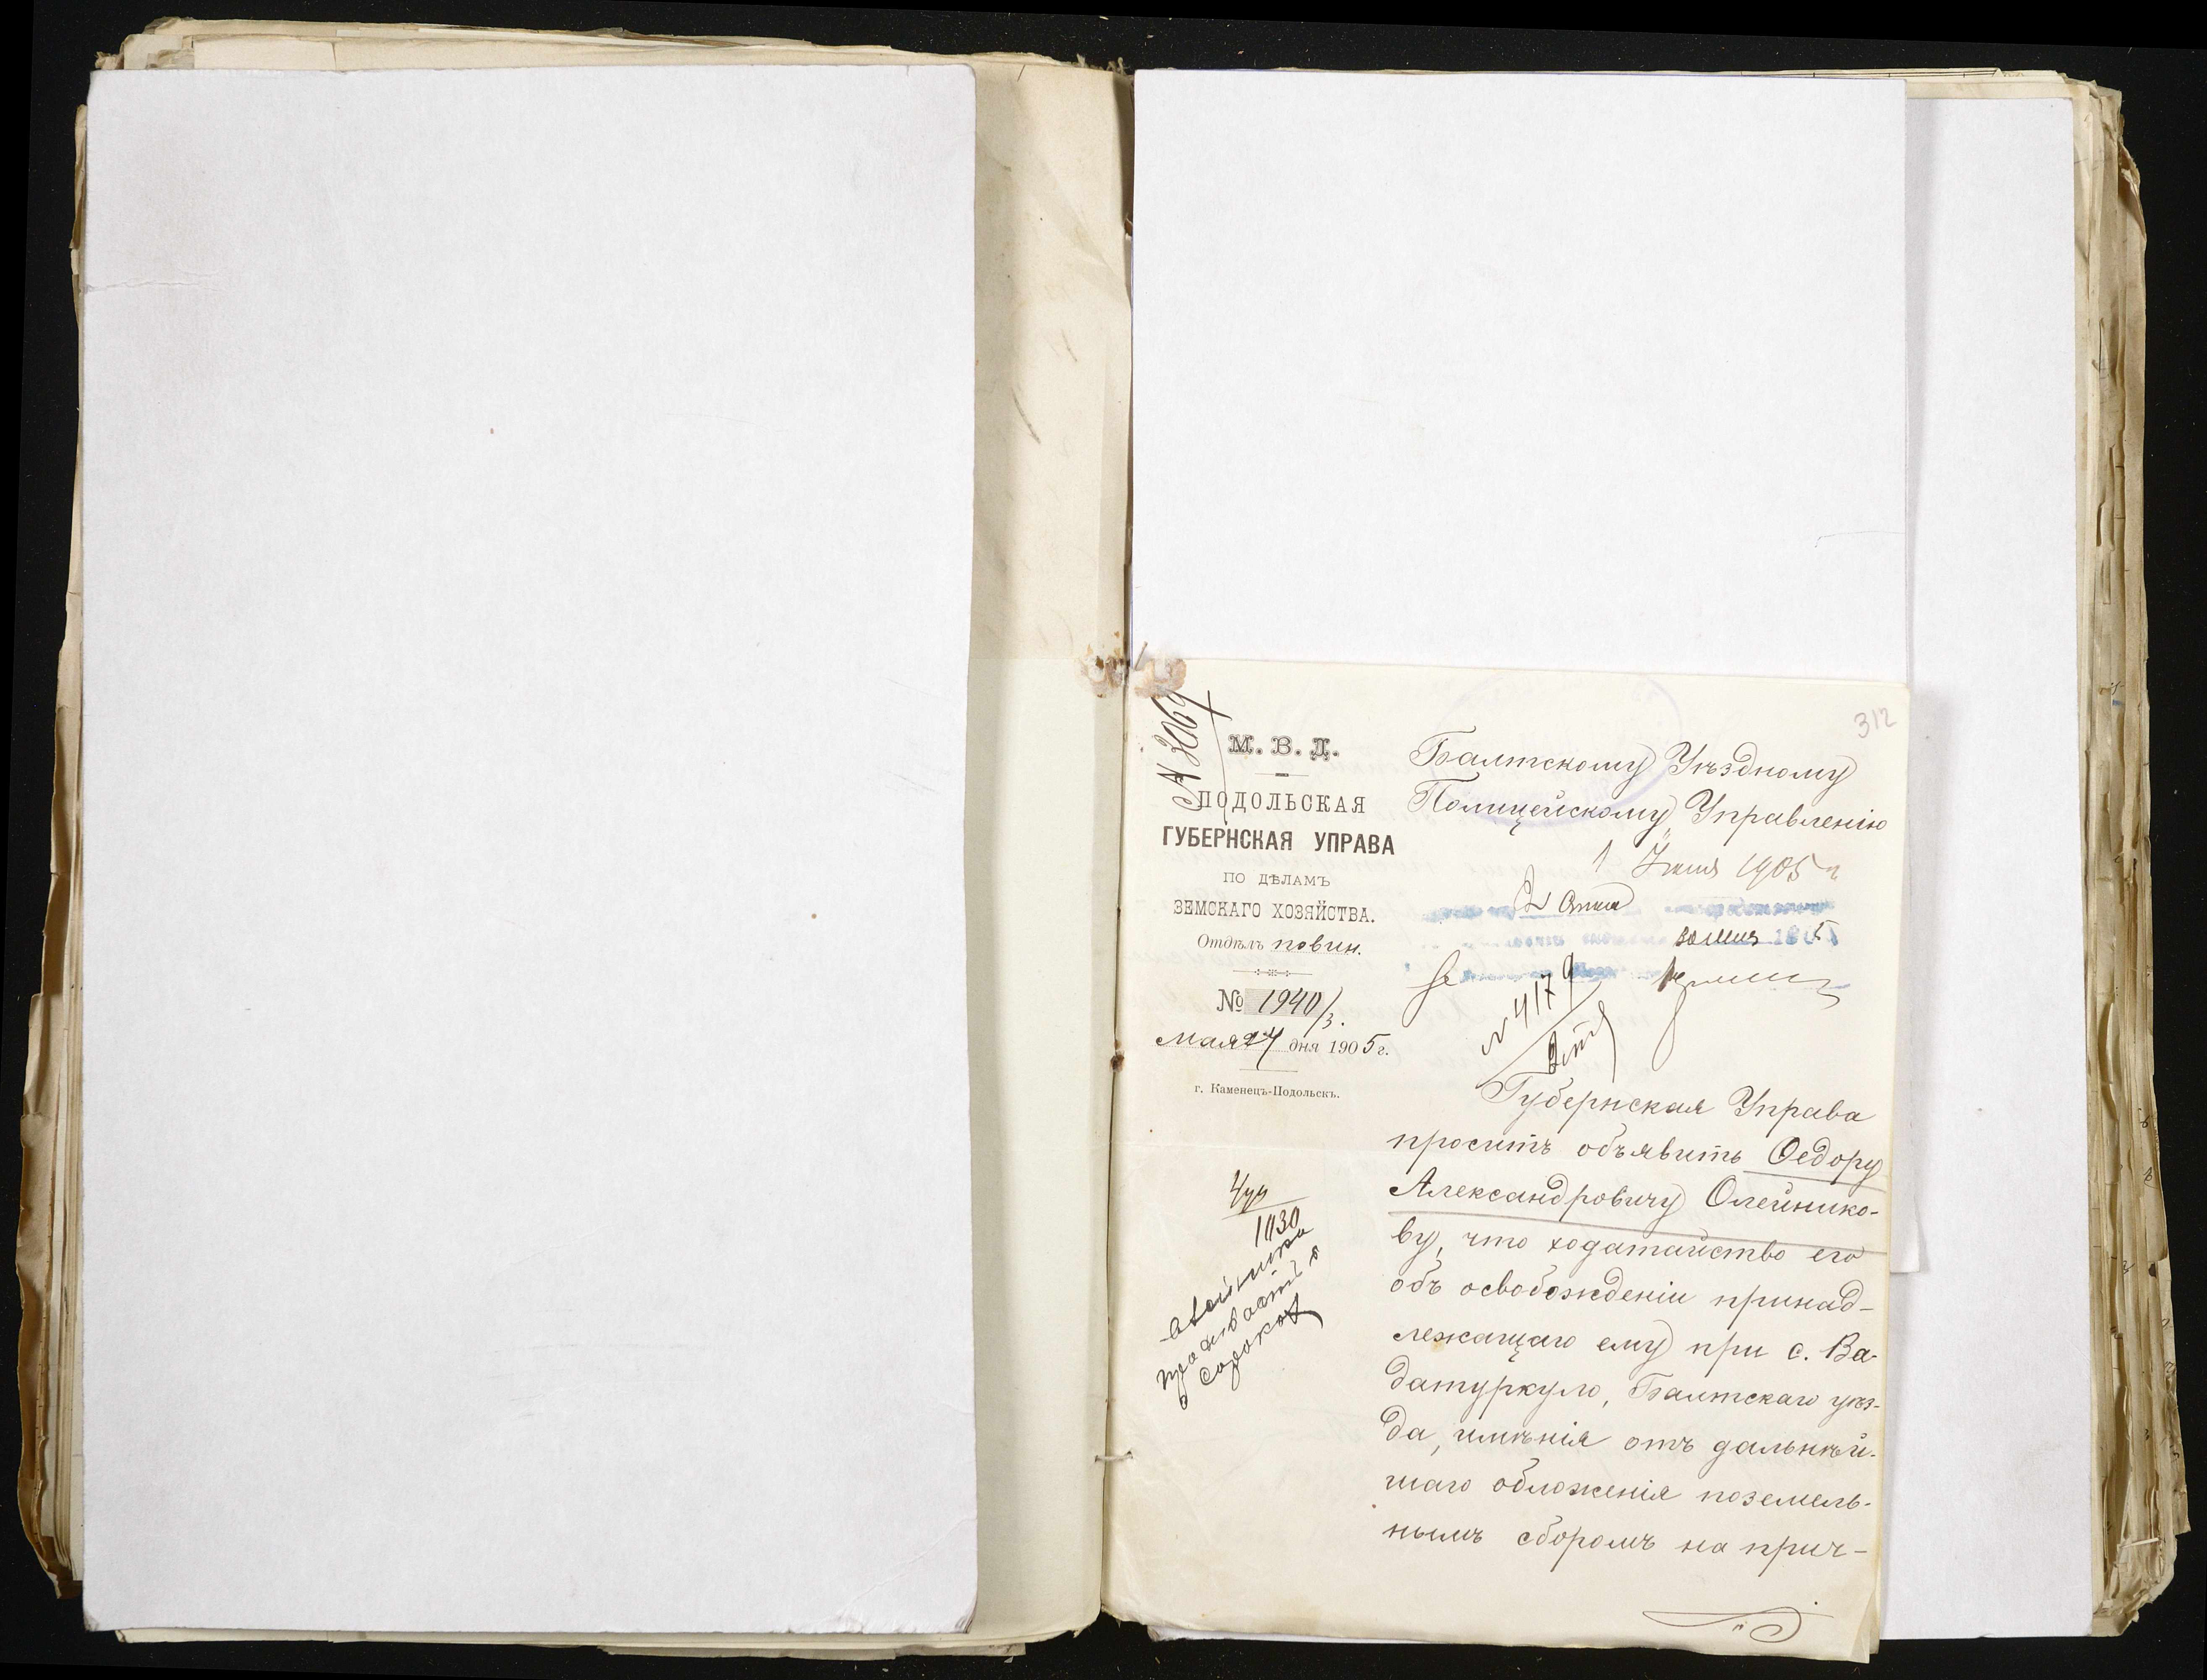 312
№ 3069
М. В. Д.
ПОДОЛЬСКАЯ
ГУБЕРНСКАЯ УПРАВА
ПО ДѢЛАМЪ
ЗЕМСКАГО ХОЗЯЙСТВА.
Отдѣлъ повин.
№ 1940/3.
Мая 24 дня 1905 г.
г. Каменецъ-Подольскъ.
Балтскому Уѣздному
Полицейскому Управленію
1 Іюня 1905 г
№ 4179
Губернская Управа
проситъ объявить Ѳедору
Александровичу Олейнико-
ву, что ходатайство его
объ освобожденіи принад-
лежащаго ему при с. Ва-
датуркуло, Балтскаго уѣз-
да, имѣнія отъ дальнѣй-
шаго обложенія поземель-
нымъ сборомъ на прич-
1130